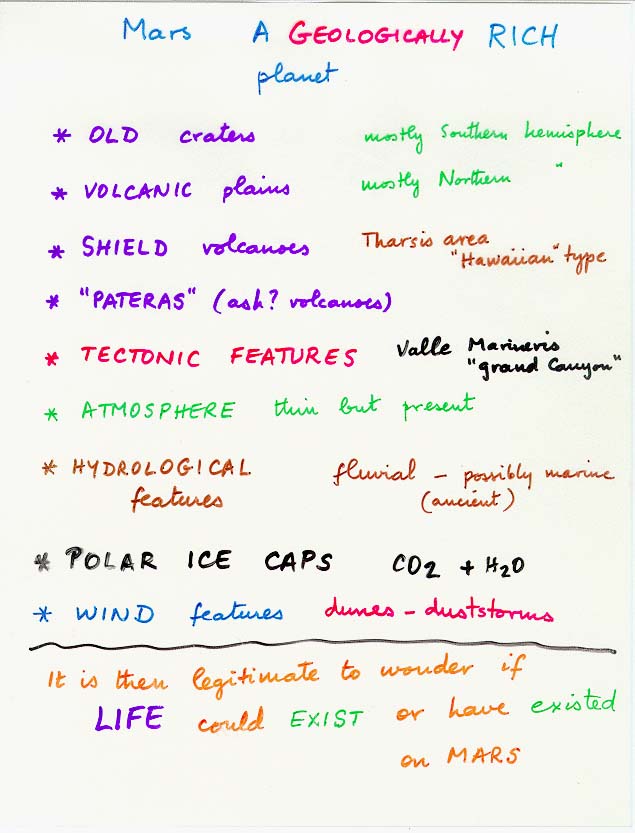 Mars A GEOLOGICALLY RICH
planet
* OLD craters mostly Southern hemisphere
* VOLCANIC plains mostly Northern "
* SHIELD volcanoes Tharsis area
"Hawaiian" type
* "PATERAS" (ash? volcanoes)
* TECTONIC FEATURES Valle Marineris
"grand Canyon"
* ATMOSPHERE thin but present
* HYDROLOGICAL fluvial - possibly marine
features (ancient)
* POLAR ICE CAPS CO2 + H2O
* WIND features dunes - duststorms
It is then legitimate to wonder if
LIFE could EXIST or have existed
on MARS